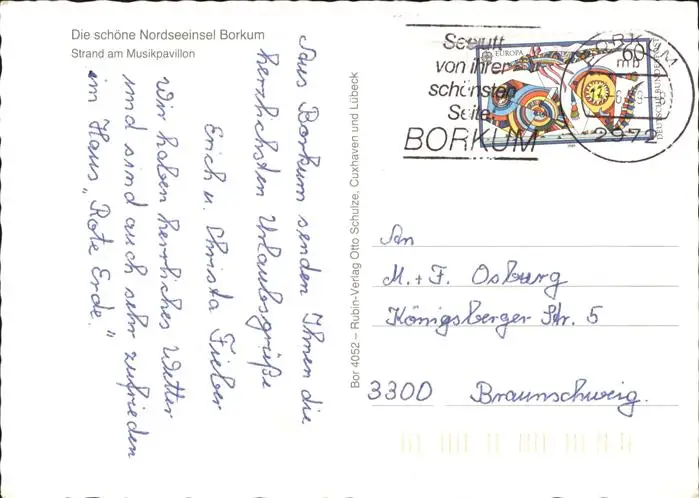 Die schöne Nordseeinsel Borkum
Strand am Musikpavillon
Aus Borkum senden Ihnen die
herzlichsten Urlaubsgrüße
Erich u. Christa Fieber
Wir haben herrliches Wetter
und sind auch sehr zufrieden
im Haus „Rote Erde."
Bor 4052 – Rubin-Verlag Otto Schulze, Cuxhaven und Lübeck
Seeluft
von ihrer
schönsten
Seite
BORKUM
EUROPA
60
DEUTSCHE BUNDESPOST
BORKUM
2972
An
M. + F. Osburg
Königsberger Str. 5
3300 Braunschweig.